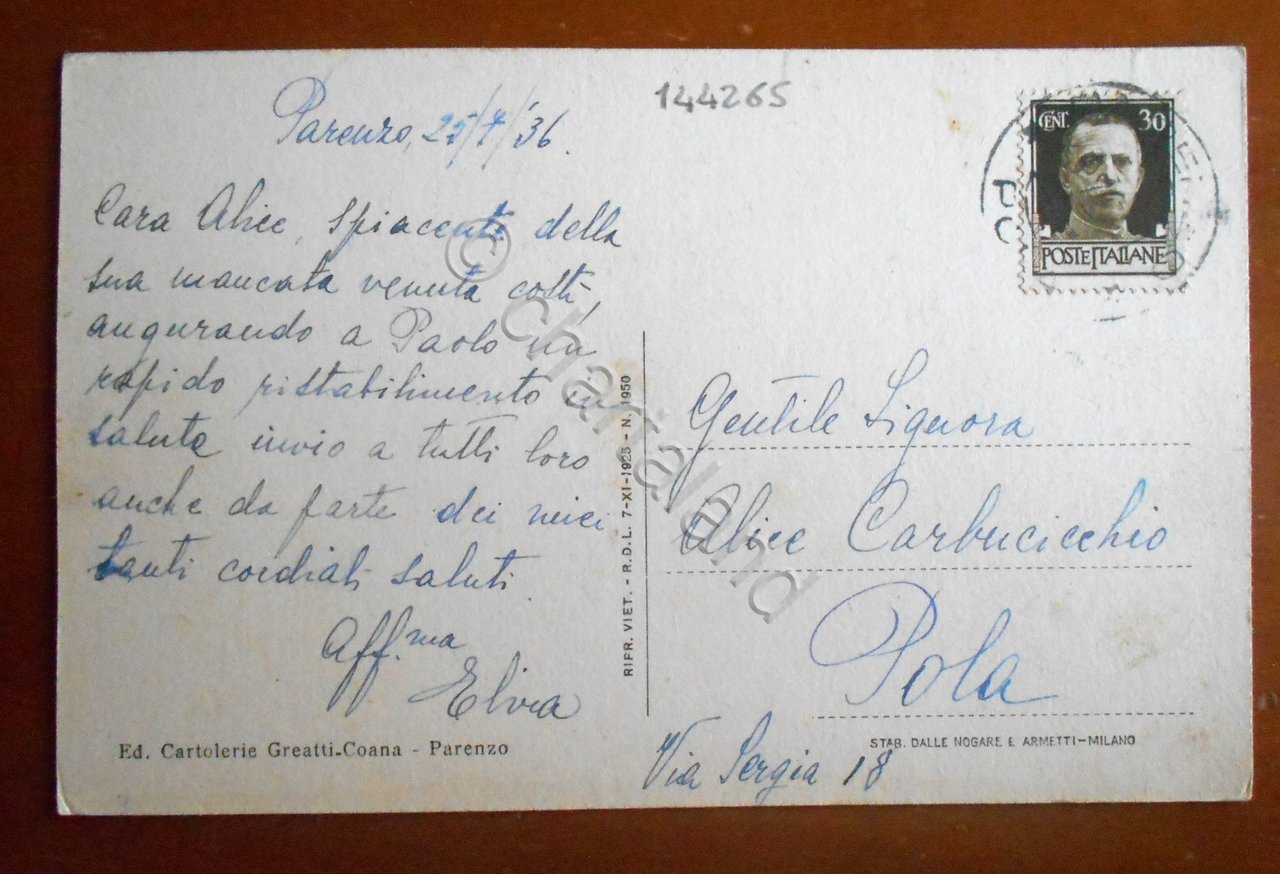 144265
Parenzo, 25/7/'36.
CENT. 30
POSTE ITALIANE
Cara Alice, spiacente della
sua mancata venuta costì,
augurando a Paolo un
rapido ristabilimento in
salute invio a tutti loro
anche da parte dei miei
tanti cordiali saluti.
Aff.ma
Elvia
Ed. Cartolerie Greatti-Coana - Parenzo
RIPR. VIET. - R.D.L. 7-XI-1925 - N. 1950
Gentile Signora
Alice Carbucicchio
Pola
Via Sergia 18
STAB. DALLE NOGARE E ARMETTI-MILANO
© chartaland